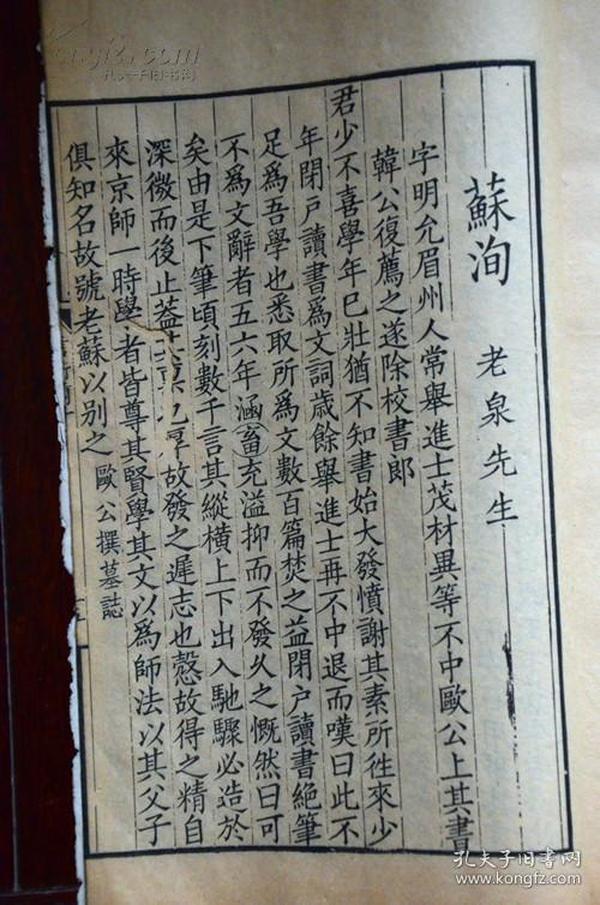 蘇洵 老泉先生
字明允眉州人常舉進士茂材異等不中歐公上其書
韓公復薦之遂除校書郎
君少不喜學年已壯猶不知書始大發憤謝其素所徃來少
年閉户讀書爲文詞歳餘舉進士再不中退而嘆曰此不
足爲吾學也悉取所爲文數百篇焚之益閉户讀書絶筆
不爲文辭者五六年涵畜充溢抑而不發久之慨然曰可
矣由是下筆頃刻數千言其縱横上下出入馳驟必造於
深微而後止葢其厚故發之遲志也慤故得之精自
來京師一時學者皆尊其賢學其文以爲師法以其父子
俱知名故號老蘇以别之 歐公撰墓誌
孔夫子旧书网
www.kongfz.com